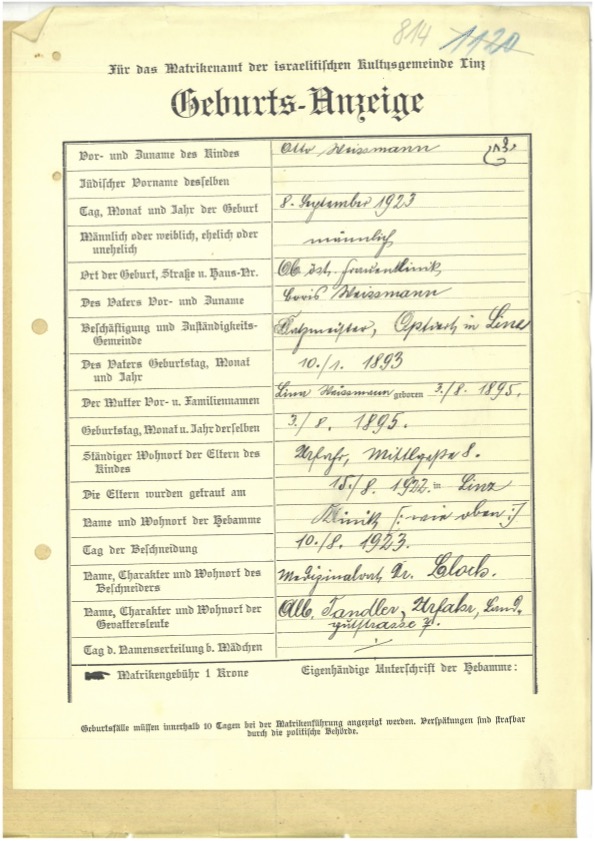 814 1120
Für das Matrikenamt der israelitischen Kultusgemeinde Linz
Geburts-Anzeige
Vor- und Zuname des Kindes Otto Weissmann
Jüdischer Vorname desselben
Tag, Monat und Jahr der Geburt 8. September 1923
Männlich oder weiblich, ehelich oder
unehelich männlich
Ort der Geburt, Straße u. Haus-Nr. Ob. öst. Frauenklinik
Des Vaters Vor- und Zuname Boris Weissmann
Beschäftigung und Zuständigkeits-
Gemeinde Platzmeister, Optiert in Linz
Des Vaters Geburtstag, Monat
und Jahr 10./1. 1893
Der Mutter Vor- u. Familiennamen Weissmann geboren 3./8. 1895.
Geburtstag, Monat u. Jahr derselben 3./8. 1895.
Ständiger Wohnort der Eltern des
Kindes Urfahr, 8.
Die Eltern wurden getraut am 15./8. 1922. in Linz
Name und Wohnort der Hebamme Klinik /: wie oben :/
Tag der Beschneidung 10./8. 1923.
Name, Charakter und Wohnort des
Beschneiders Medizinalrat Dr. Bloch.
Name, Charakter und Wohnort der
Gevattersleute Alb. Tandler, Urfahr, Land-
gutstrasse 7.
Tag d. Namenserteilung b. Mädchen
Matrikengebühr 1 Krone Eigenhändige Unterschrift der Hebamme:
Geburtsfälle müssen innerhalb 10 Tagen bei der Matrikenführung angezeigt werden. Verspätungen sind strafbar
durch die politische Behörde.